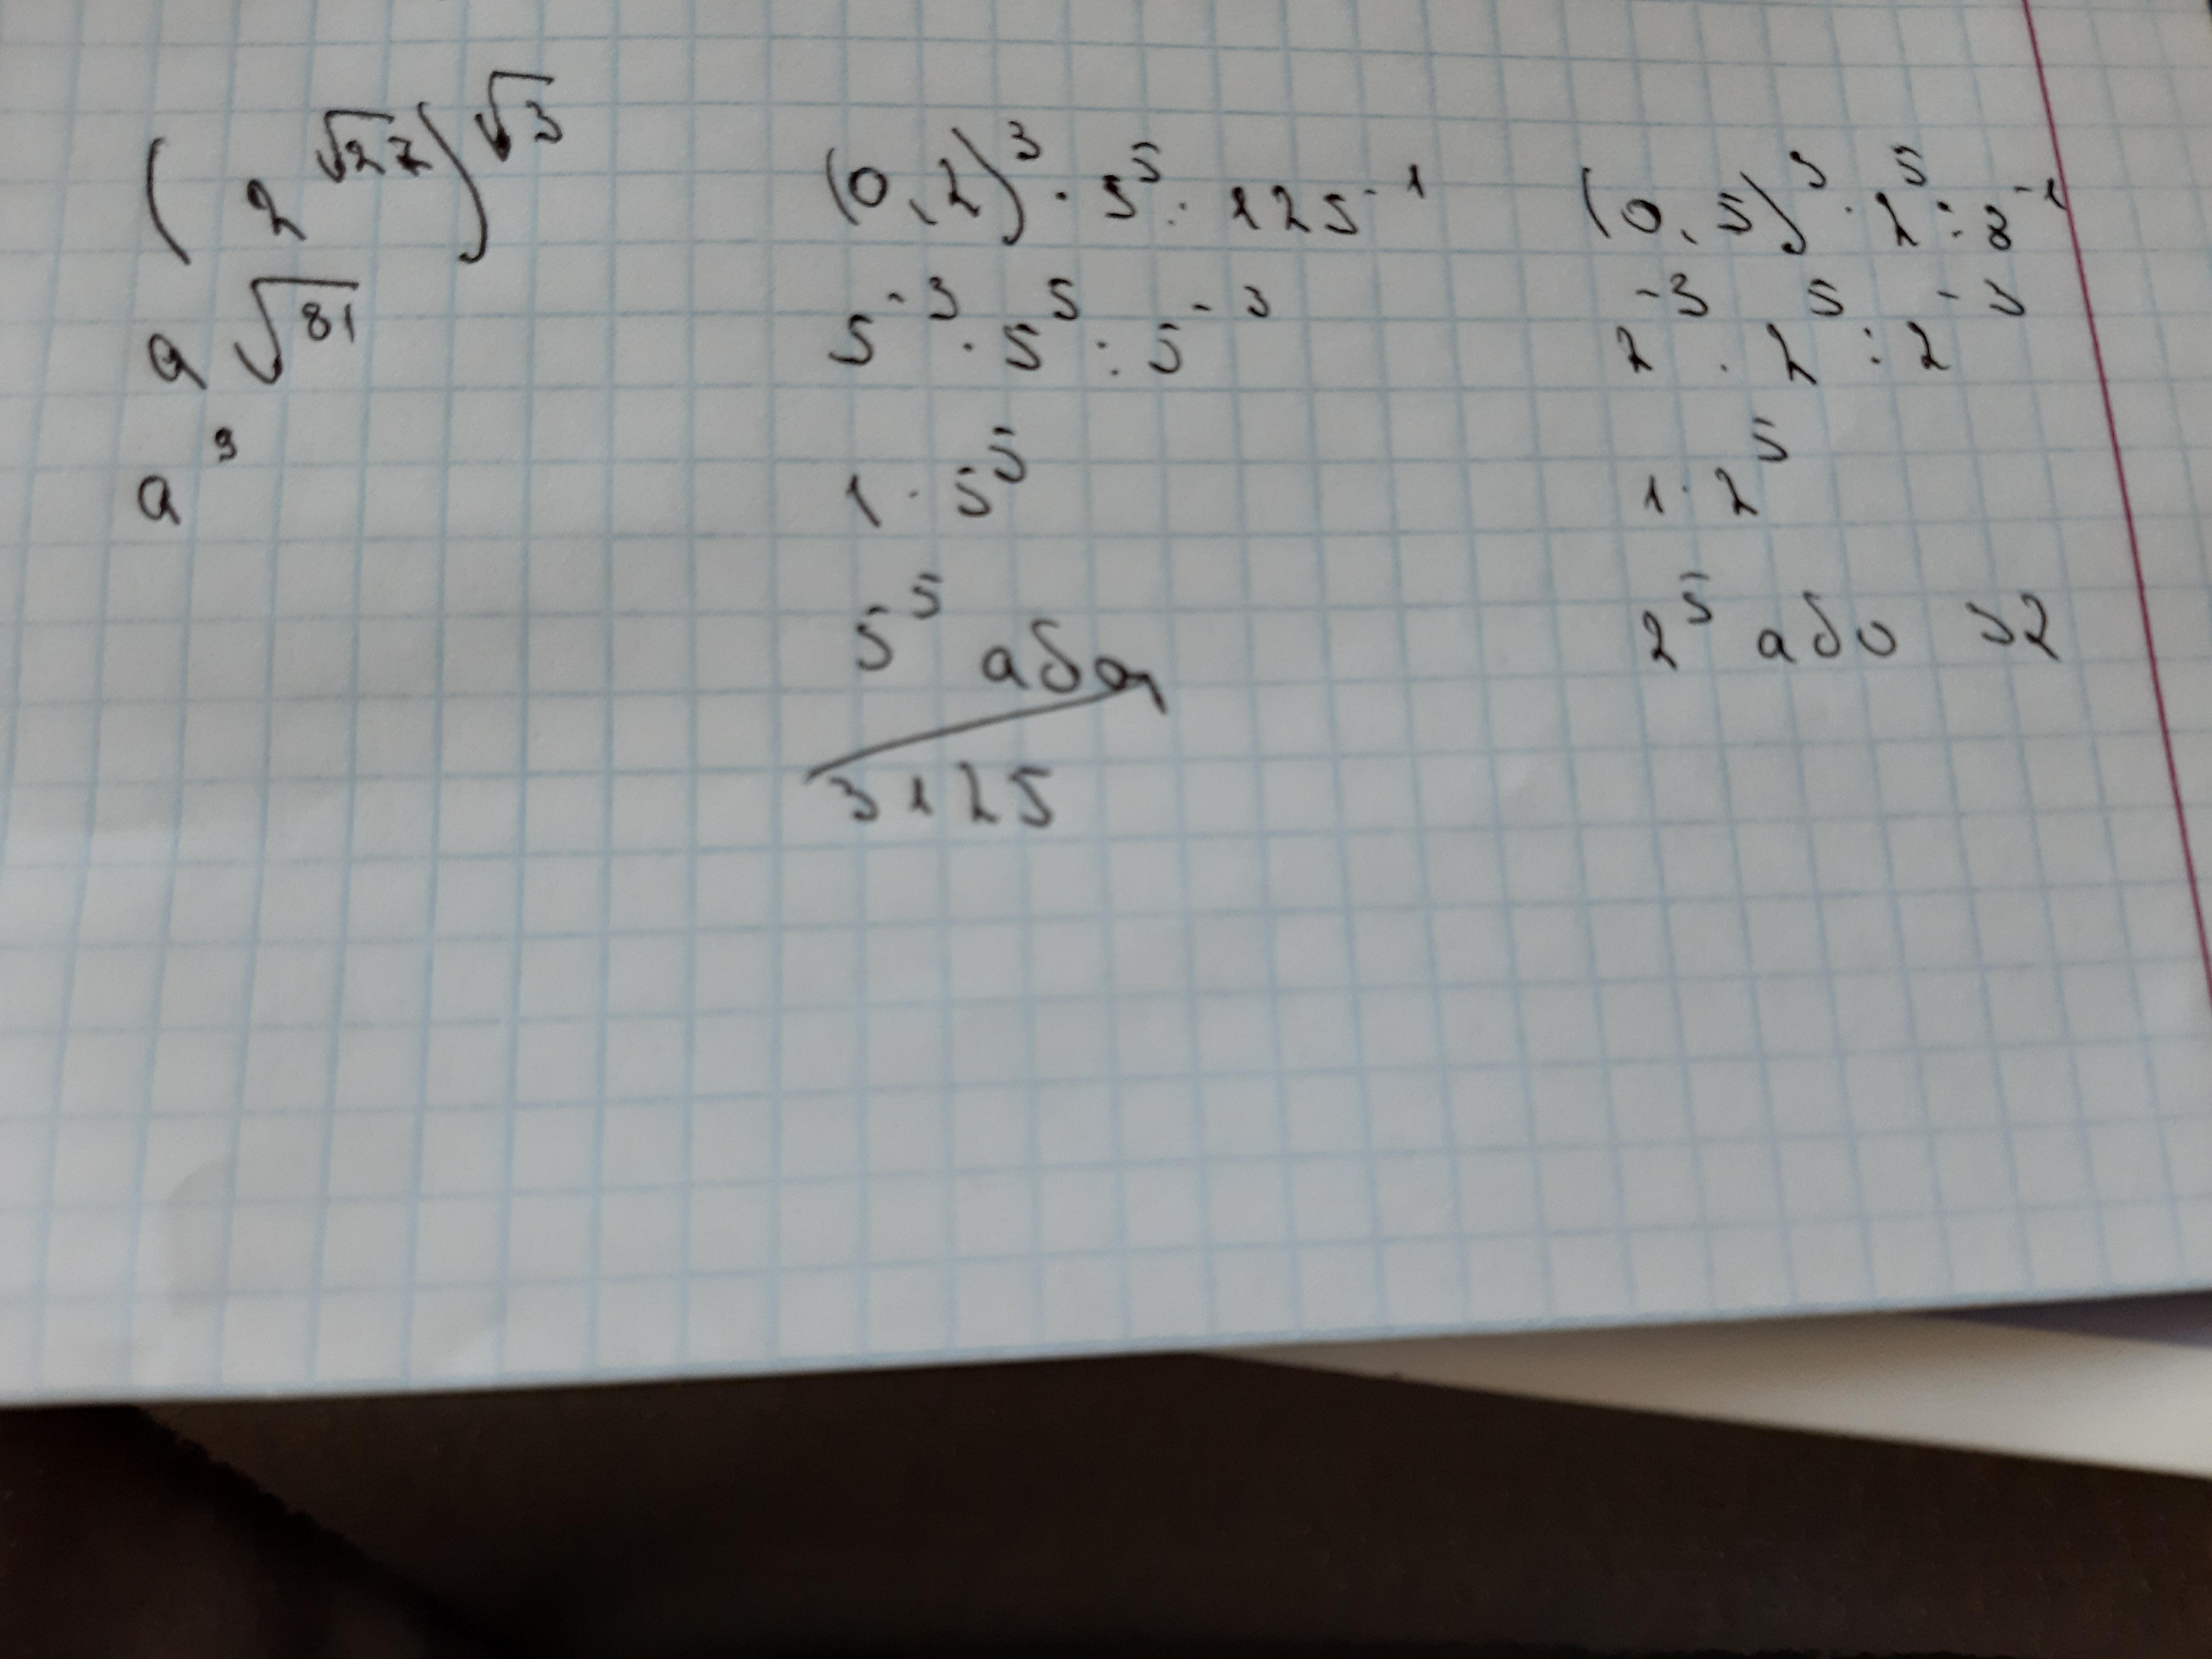 (2^√27)^√3
a √81
a^9
(0,2)^3 · 5^5 : 125^-1
5^-3 · 5^5 : 5^-3
1 · 5^5
5^5 або
3125
(0,5)^3 · 2^5 : 8^-1
2^-3 · 2^5 : 2^-3
1 · 2^5
2^5 або 32